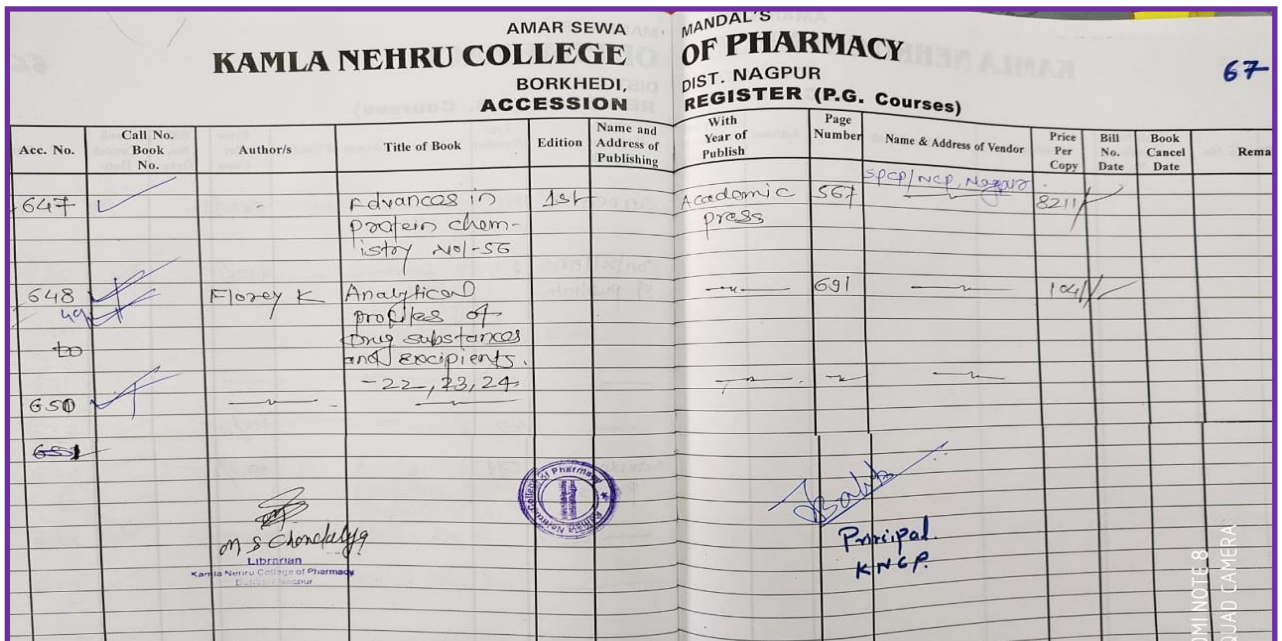 AMAR SEWA MANDAL'S
KAMLA NEHRU COLLEGE OF PHARMACY
BORKHEDI, DIST. NAGPUR
ACCESSION REGISTER (P.G. Courses)
67
Acc. No. Call No. Book No. Author/s Title of Book Edition Name and Address of Publishing With Year of Publish Page Number Name & Address of Vendor Price Per Copy Bill No. Date Book Cancel Date Rema
SPCP/NCP, Nagpur.
647 - Advances in 1st Academic 567 8211/
protein chem- press
istry Vol-56
648 Florey K Analytical 691 104/
49 profiles of
to drug substances
and excipients.
-22, 23, 24
650
651
M S Chondalya
Librarian
Kamla Nehru College of Pharmacy
Nagpur
Kamla Nehru College of Pharmacy
Principal.
KNCP.
REDMI NOTE 8
QUAD CAMERA